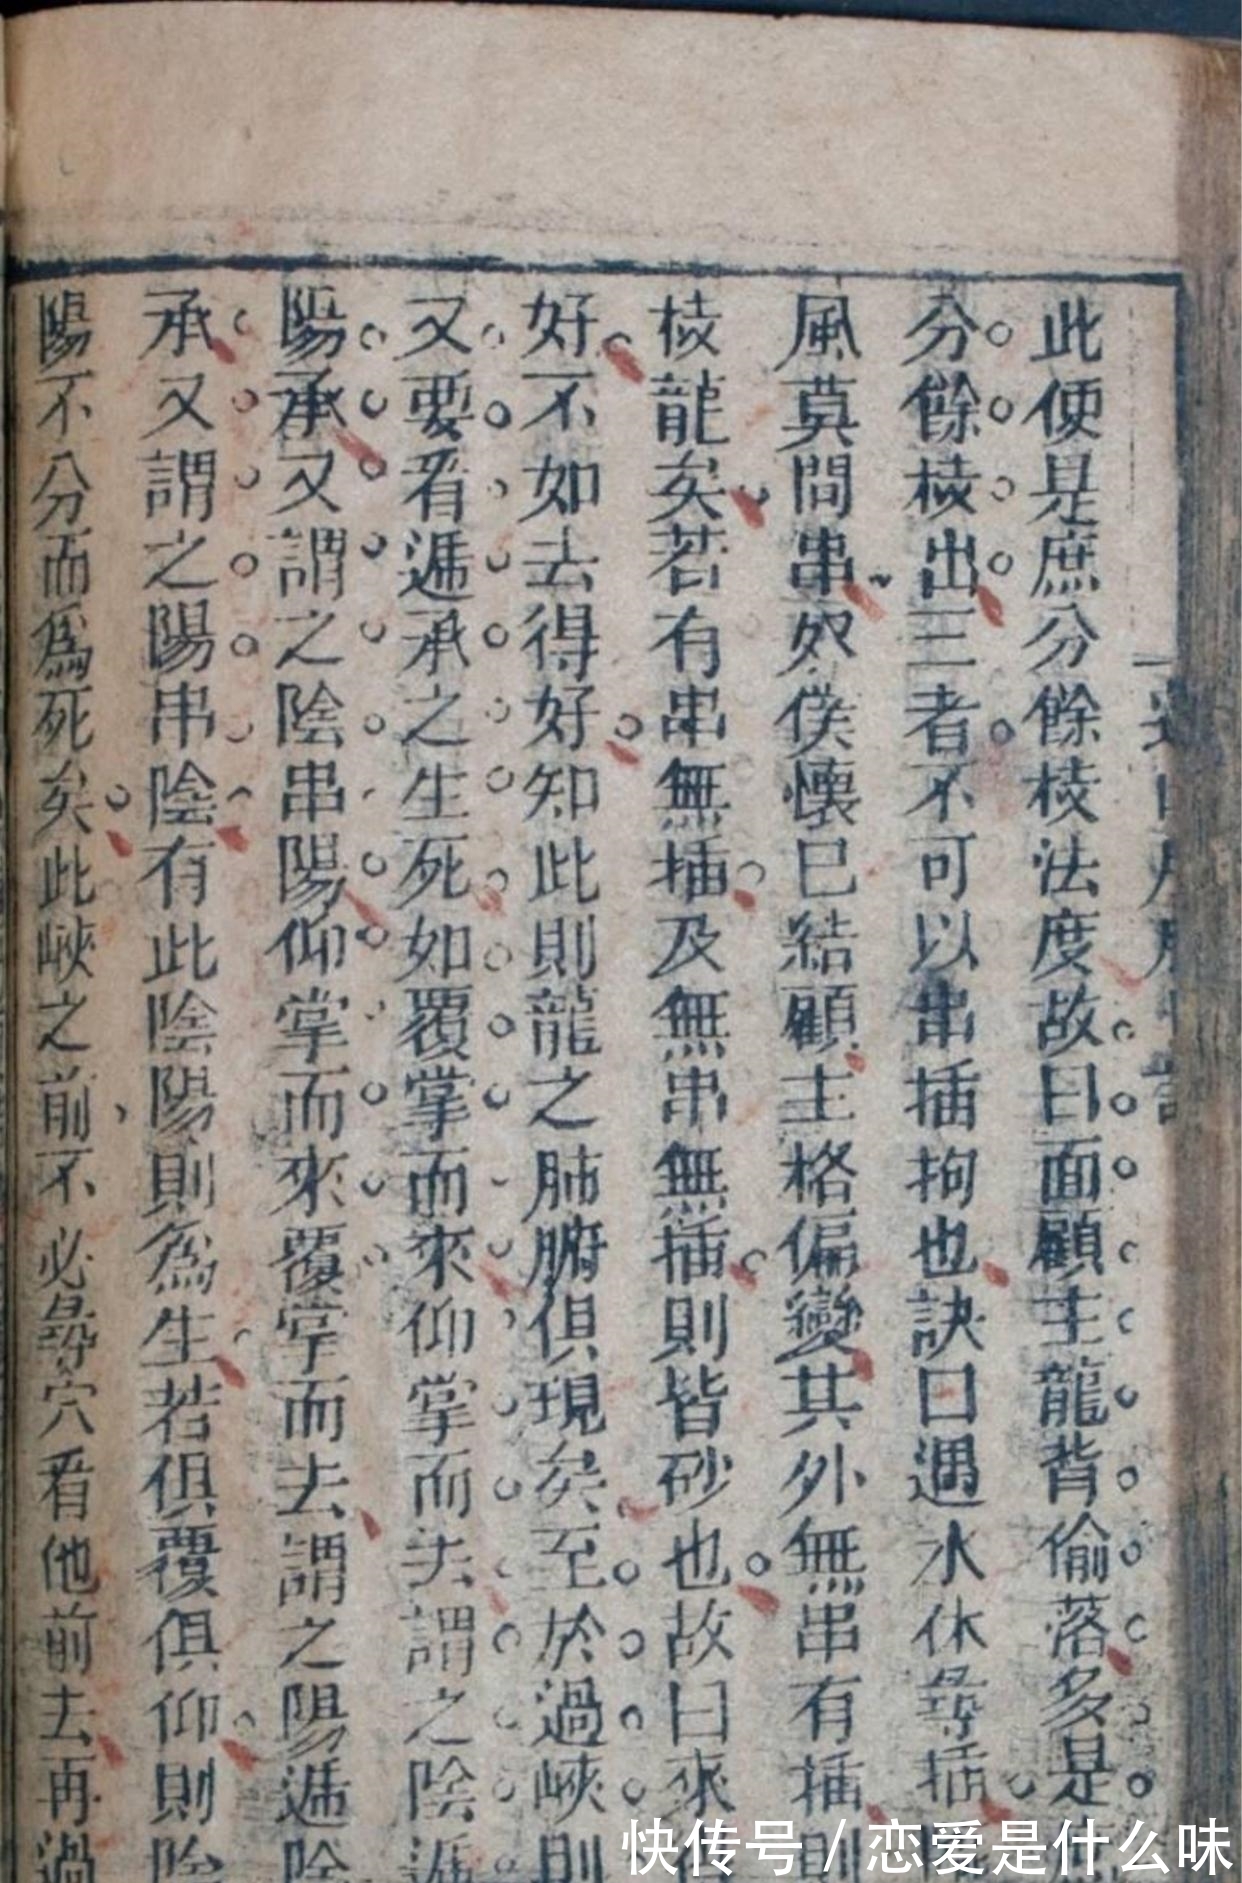 此便是庶分餘枝法度故曰面顧主龍背偷落多是
分餘枝出三者不可以串插拘也訣曰遇水休尋插
風莫問串奴僕懷已結顧主格偏變其外無串有插則
枝龍矣若有串無插及無串無插則皆砂也故曰來
好不如去得好知此則龍之肺腑俱現矣至於過峽則
又要看遞承之生死如覆掌而來仰掌而去謂之陰遞
陽承又謂之陰串陽仰掌而來覆掌而去謂之陽遞陰
承又謂之陽串陰有此陰陽則為生若俱覆俱仰則陰
陽不分而為死矣此峽之前不必尋穴看他前去再過
快传号/恋爱是什么味